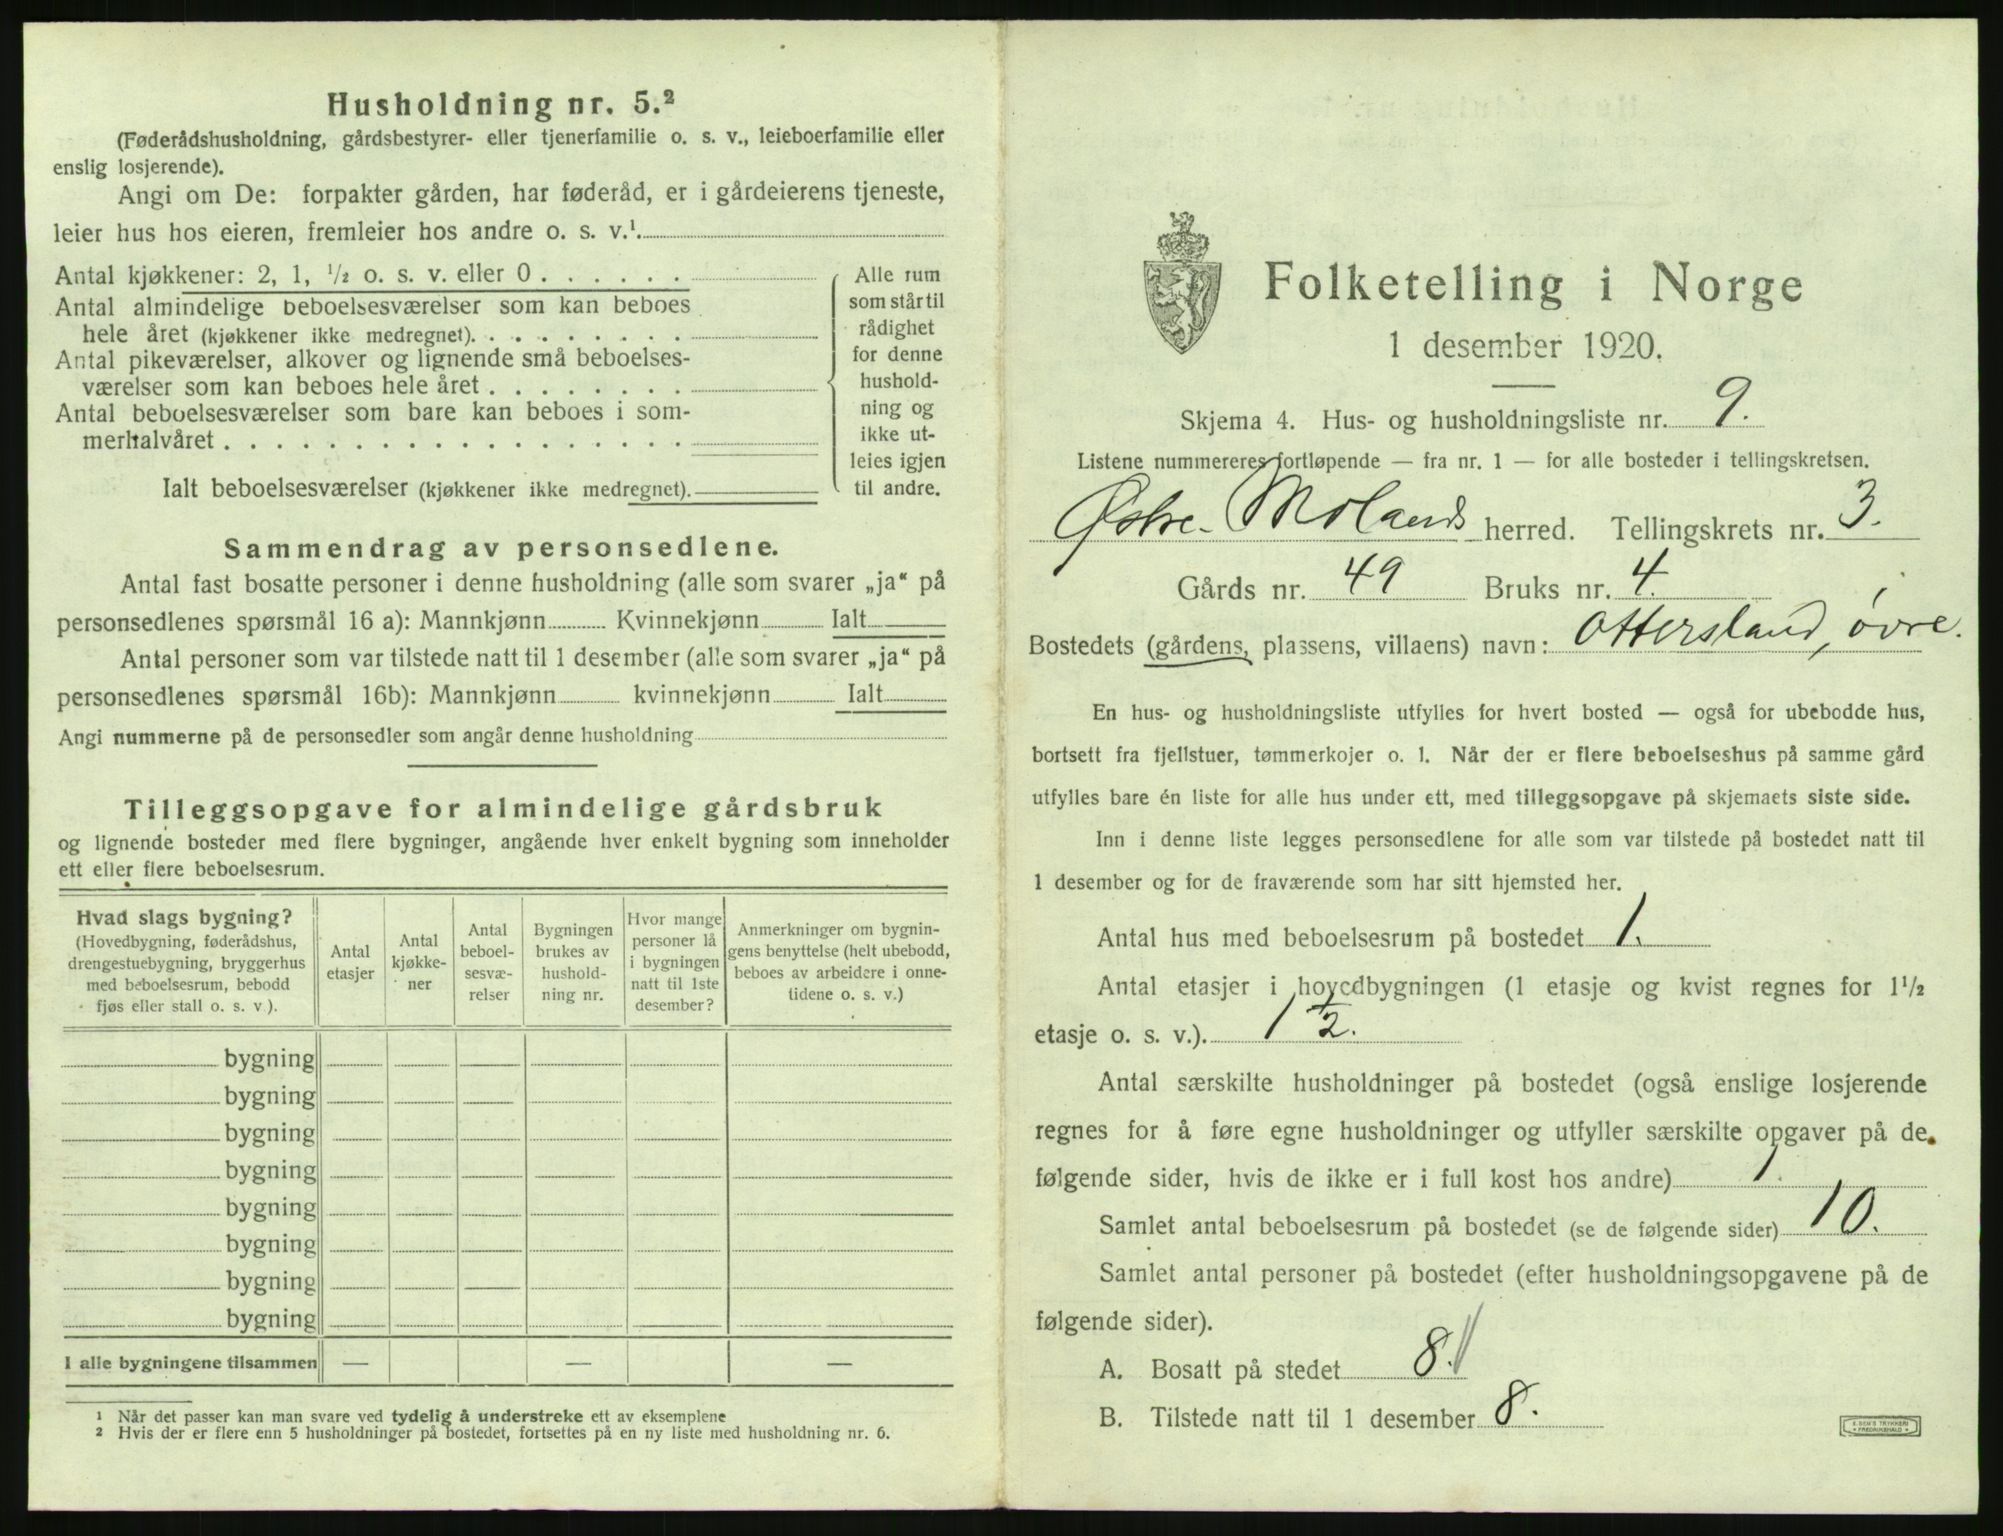 Husholdning nr. 5.²
(Føderådshusholdning, gårdsbestyrer- eller tjenerfamilie o. s. v., leieboerfamilie eller
enslig losjerende).
Angi om De: forpakter gården, har føderåd, er i gårdeierens tjeneste,
leier hus hos eieren, fremleier hos andre o. s. v.¹
Antal kjøkkener: 2, 1, ½ o. s. v. eller 0 . . . . . .
Antal almindelige beboelsesværelser som kan beboes
hele året (kjøkkener ikke medregnet). . . . . . . . .
Antal pikeværelser, alkover og lignende små beboelses-
værelser som kan beboes hele året . . . . . . . .
Antal beboelsesværelser som bare kan beboes i som-
merhalvåret . . . . . . . . . . . . . . . . . .
Ialt beboelsesværelser (kjøkkener ikke medregnet).
Alle rum
som står til
rådighet
for denne
hushold-
ning og
ikke ut-
leies igjen
til andre.
Sammendrag av personsedlene.
Antal fast bosatte personer i denne husholdning (alle som svarer „ja“ på
personsedlenes spørsmål 16 a): Mannkjønn Kvinnekjønn Ialt
Antal personer som var tilstede natt til 1 desember (alle som svarer „ja“ på
personsedlenes spørsmål 16b): Mannkjønn kvinnekjønn Ialt
Angi nummerne på de personsedler som angår denne husholdning
Tilleggsopgave for almindelige gårdsbruk
og lignende bosteder med flere bygninger, angående hver enkelt bygning som inneholder
ett eller flere beboelsesrum.
Hvad slags bygning?
(Hovedbygning, føderådshus,
drengestuebygning, bryggerhus
med beboelsesrum, bebodd
fjøs eller stall o. s. v.).
Antal
etasjer
Antal
kjøkke-
ner
Antal
beboel-
sesvæ-
relser
Bygningen
brukes av
hushold-
ning nr.
Hvor mange
personer lå
i bygningen
natt til 1ste
desember?
Anmerkninger om bygnin-
gens benyttelse (helt ubebodd,
beboes av arbeidere i onne-
tidene o. s. v.)
bygning
bygning
bygning
bygning
bygning
bygning
bygning
bygning
I alle bygningene tilsammen — — —
¹ Når det passer kan man svare ved tydelig å understreke ett av eksemplene
² Hvis der er flere enn 5 husholdninger på bostedet, fortsettes på en ny liste med husholdning nr. 6.
Folketelling i Norge
1 desember 1920.
Skjema 4. Hus- og husholdningsliste nr. 9.
Listene nummereres fortløpende — fra nr. 1 — for alle bosteder i tellingskretsen.
Østre-Molands herred. Tellingskrets nr. 3.
Gårds nr. 49 Bruks nr. 4.
Bostedets (gårdens, plassens, villaens) navn: Ottersland, øvre.
En hus- og husholdningsliste utfylles for hvert bosted — også for ubebodde hus,
bortsett fra fjellstuer, tømmerkojer o. l. Når der er flere beboelseshus på samme gård
utfylles bare én liste for alle hus under ett, med tilleggsopgave på skjemaets siste side.
Inn i denne liste legges personsedlene for alle som var tilstede på bostedet natt til
1 desember og for de fraværende som har sitt hjemsted her.
Antal hus med beboelsesrum på bostedet 1.
Antal etasjer i hovedbygningen (1 etasje og kvist regnes for 1½
etasje o. s. v.). 1 ½.
Antal særskilte husholdninger på bostedet (også enslige losjerende
regnes for å føre egne husholdninger og utfyller særskilte opgaver på de
følgende sider, hvis de ikke er i full kost hos andre) 1.
Samlet antal beboelsesrum på bostedet (se de følgende sider) 10.
Samlet antal personer på bostedet (efter husholdningsopgavene på de
følgende sider).
A. Bosatt på stedet 8.
B. Tilstede natt til 1 desember 8.